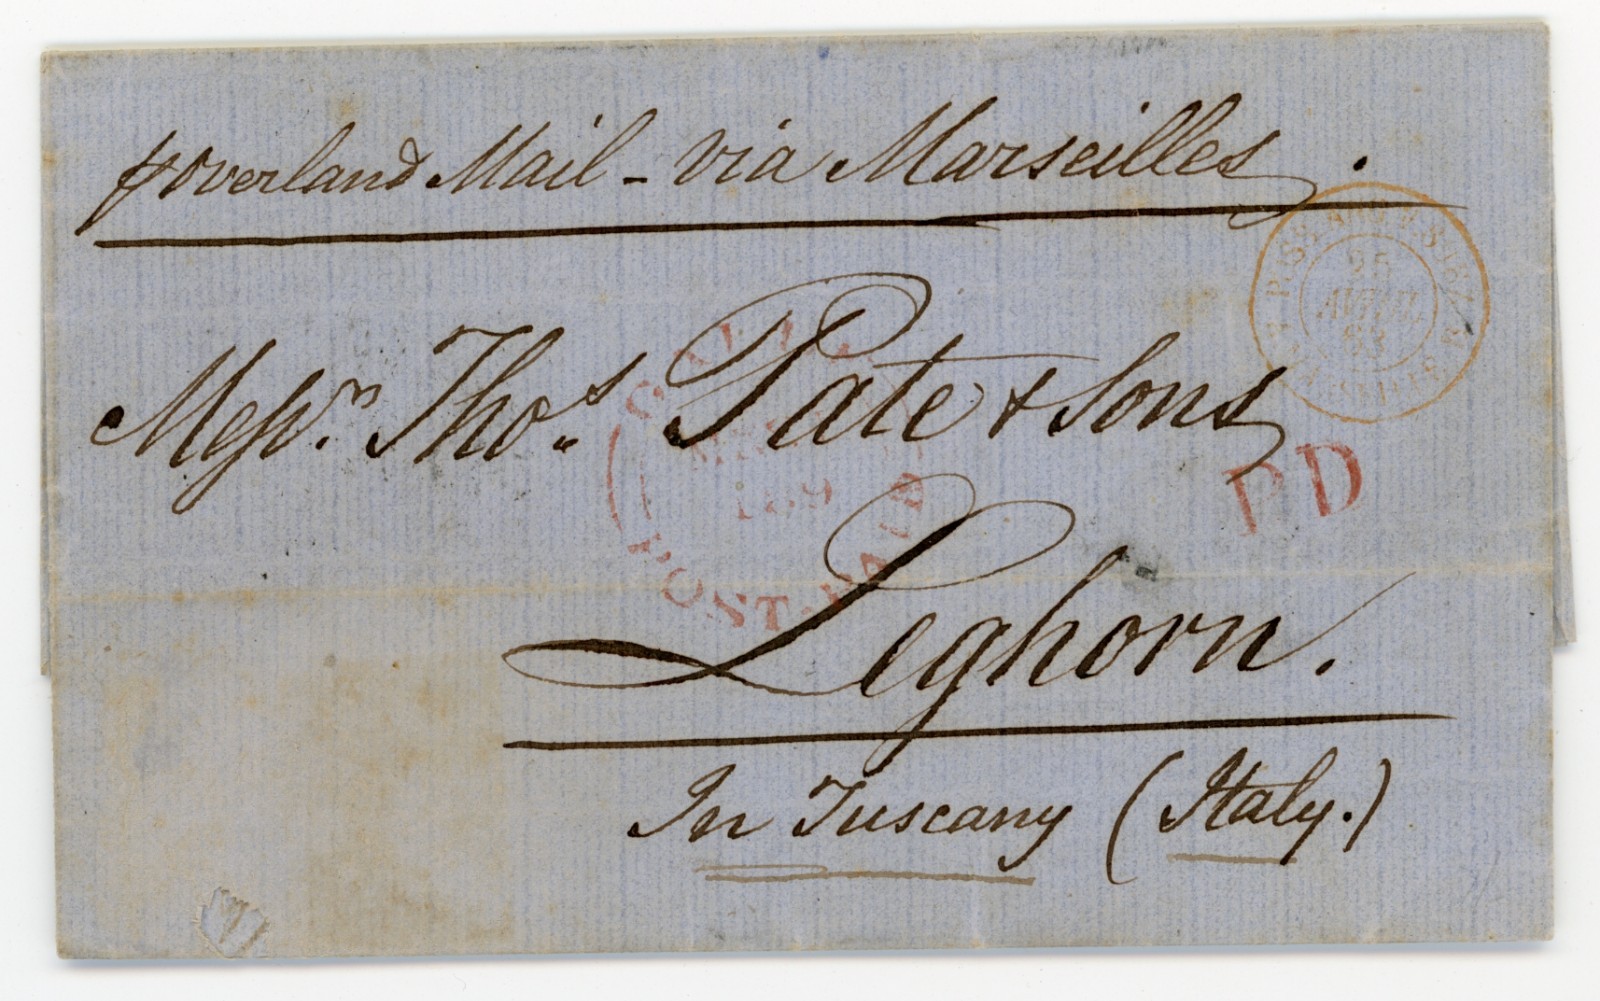 p overland Mail - via Marseilles.
Messrs. Thos. Pate & Sons
Leghorn.
In Tuscany (Italy.)
PD
GALLE
POST PAID
25
AVRIL
63